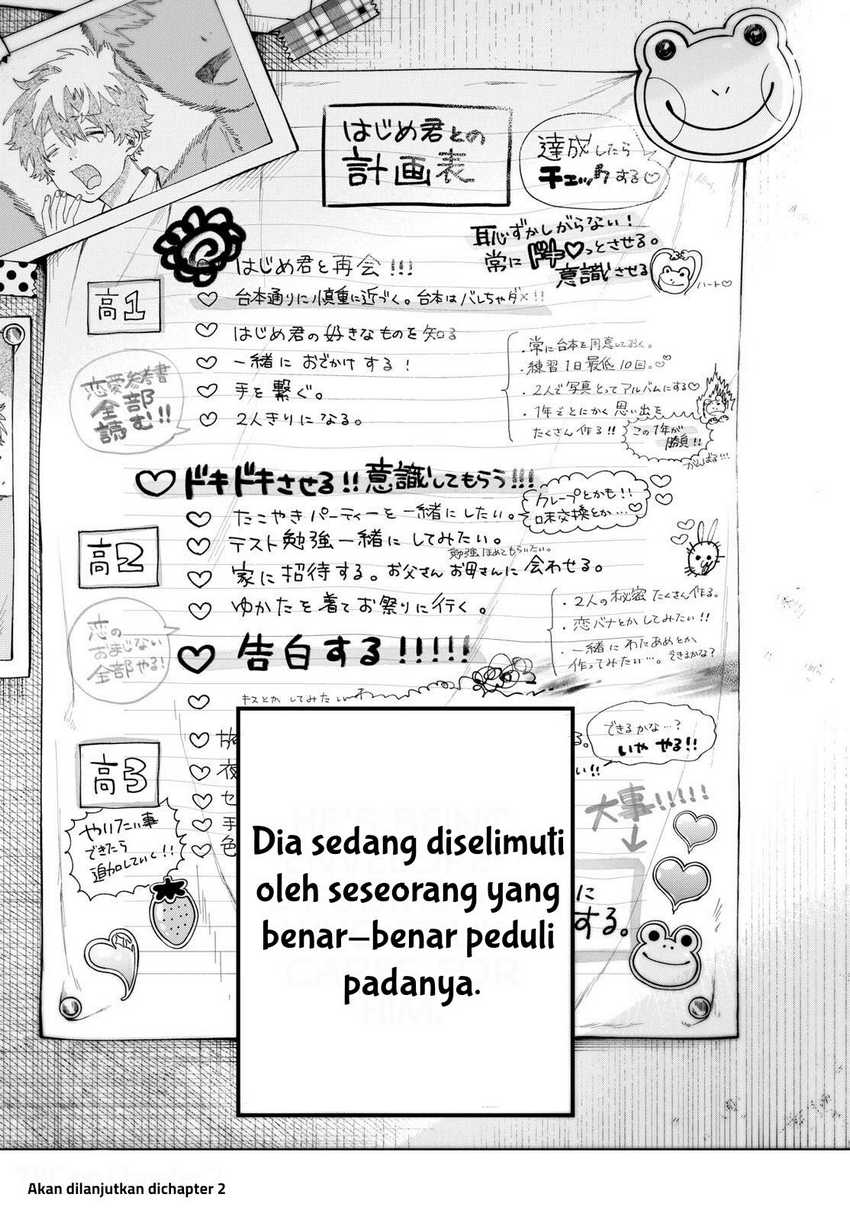 はじめ君との
計画表
達成したら
チェックする♡
恥ずかしがらない！
常にドキ♡っとさせる。
意識させる
ハート♡
はじめ君と再会!!!
高1
♡ 台本通りに慎重に近づく。台本はバレちゃダメ!!
♡ はじめ君の好きなものを知る
♡ 一緒におでかけする！
♡ 手を繋ぐ。
♡ 2人きりになる。
恋愛参考書
全部
読む!!
・常に台本を用意しておく。
・練習1日最低10回。
・2人で写真とってアルバムにする♡
・1年でとにかく思い出を
たくさん作る!!
この1年が
勝負!!
がんばる!!!
♡ ドキドキさせる!!意識してもらう!!!
♡ たこやきパーティーを一緒にしたい。
クレープとかも!!
味交換とか…
高2
♡ テスト勉強一緒にしてみたい。
勉強ほめてもらいたい。
♡ 家に招待する。お父さんお母さんに会わせる。
♡ ゆかたを着てお祭りに行く。
恋の
おまじない
全部やる!
・2人の秘密たくさん作る。
・恋バナとかしてみたい!!
・一緒にわたあめとか
作ってみたい…。できるかな？
♡ 告白する!!!!!
♡ キスとかしてみたい
できるかな…？
いややる!!
高3
♡
♡ 夜
♡ セ
♡ 手
♡ 色
やりたい事
できたら
追加していく!!
大事!!!!!
に
する。
Dia sedang diselimuti
oleh seseorang yang
benar-benar peduli
padanya.
Akan dilanjutkan dichapter 2